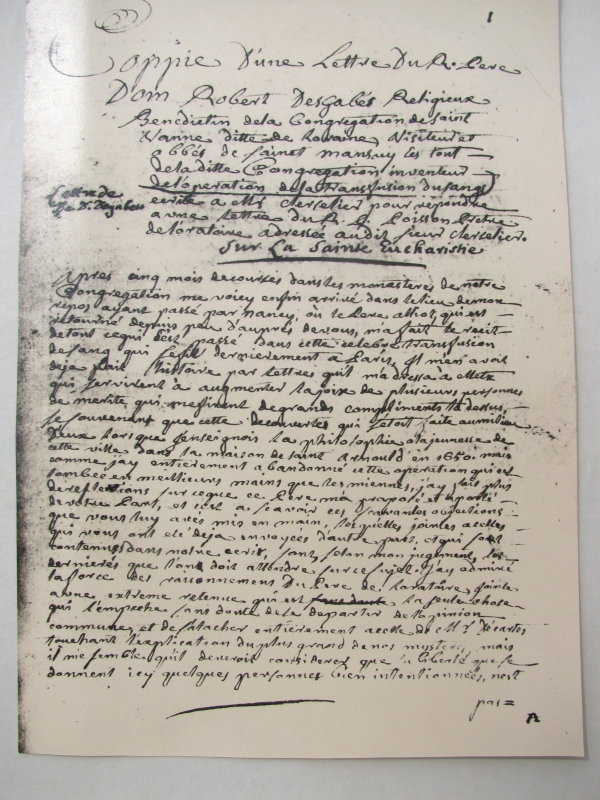 1
Coppie D'une Lettre Du R. Pere
Dom Robert Desgabés Religieux
Benédictin dela Congregation de saint
Vanne ditte de Loraine, visiteur et
abbés de sainct mansuy les toul
dela ditte Congregation inventeur
de l'operation de la transfusion du sang
Lettre de
ecrite a Mr Clerselier pour répondre
a une Lettre du R. P. Poisson Pretre
de l'oratoire adressée audit sieur Clerselier.
Sur La Sainte Eucharistie
Apres cinq mois de courses dans les monasteres de nôtre
Congregation me voicy enfin arrivé dans le lieu de mon
repos ayant passé par nancy, où le Pere alliot, qui est
retourné depuis peu d'auprés de vous, m'a fait le recit
de tout ce qui s'est passé dans cette celebre transfusion
de sang qui se fit dernierement a Paris, Il m'en avoit
deja fait l'histoire par lettres qu'il m'adressa a Metz
qui servirent à augmenter la joix de plusieurs personnes
de merite, qui me firent de grands compliments la dessus,
se souvenant que cette decouverte qui s'etoit faite au milieu
Deux lorsque j'enseignois la philosophie a la jeunesse de
cette ville dans la maison de saint arnould en 1650. mais
comme j'ay entierement abandonné cette operation qui est
tombée en meilleurs mains que les miennes, j'ay fait plus
de reflexions sur ce que ce Pere m'a proposé et aporté
de votre part, et c'est a scavoir ces scavantes objections
que vous luy avés mis en main, lesquelles jointes a celles
qui vous ont eté deja envoyées d'autre part, et qui sont
contenues dans notre ecrit, sont, selon mon jugement, les
dernieres que l'on doit attendre sur ce sujet. J'ay admiré
la force des raisonnemens Du Pere de l'oratoire, jointe
a une extreme retenue qui est la seule chose
qui l'empeche sans doute de se departir de l'opinion
commune, et de s'atacher entierement a celle de Mr Descartes
touchant l'explication du plus grand de nos mysteres, mais
il me semble qu'il devroit considerer que la liberté que se
donnent icy quelques personnes bien intentionnées, n'est
pas =
A